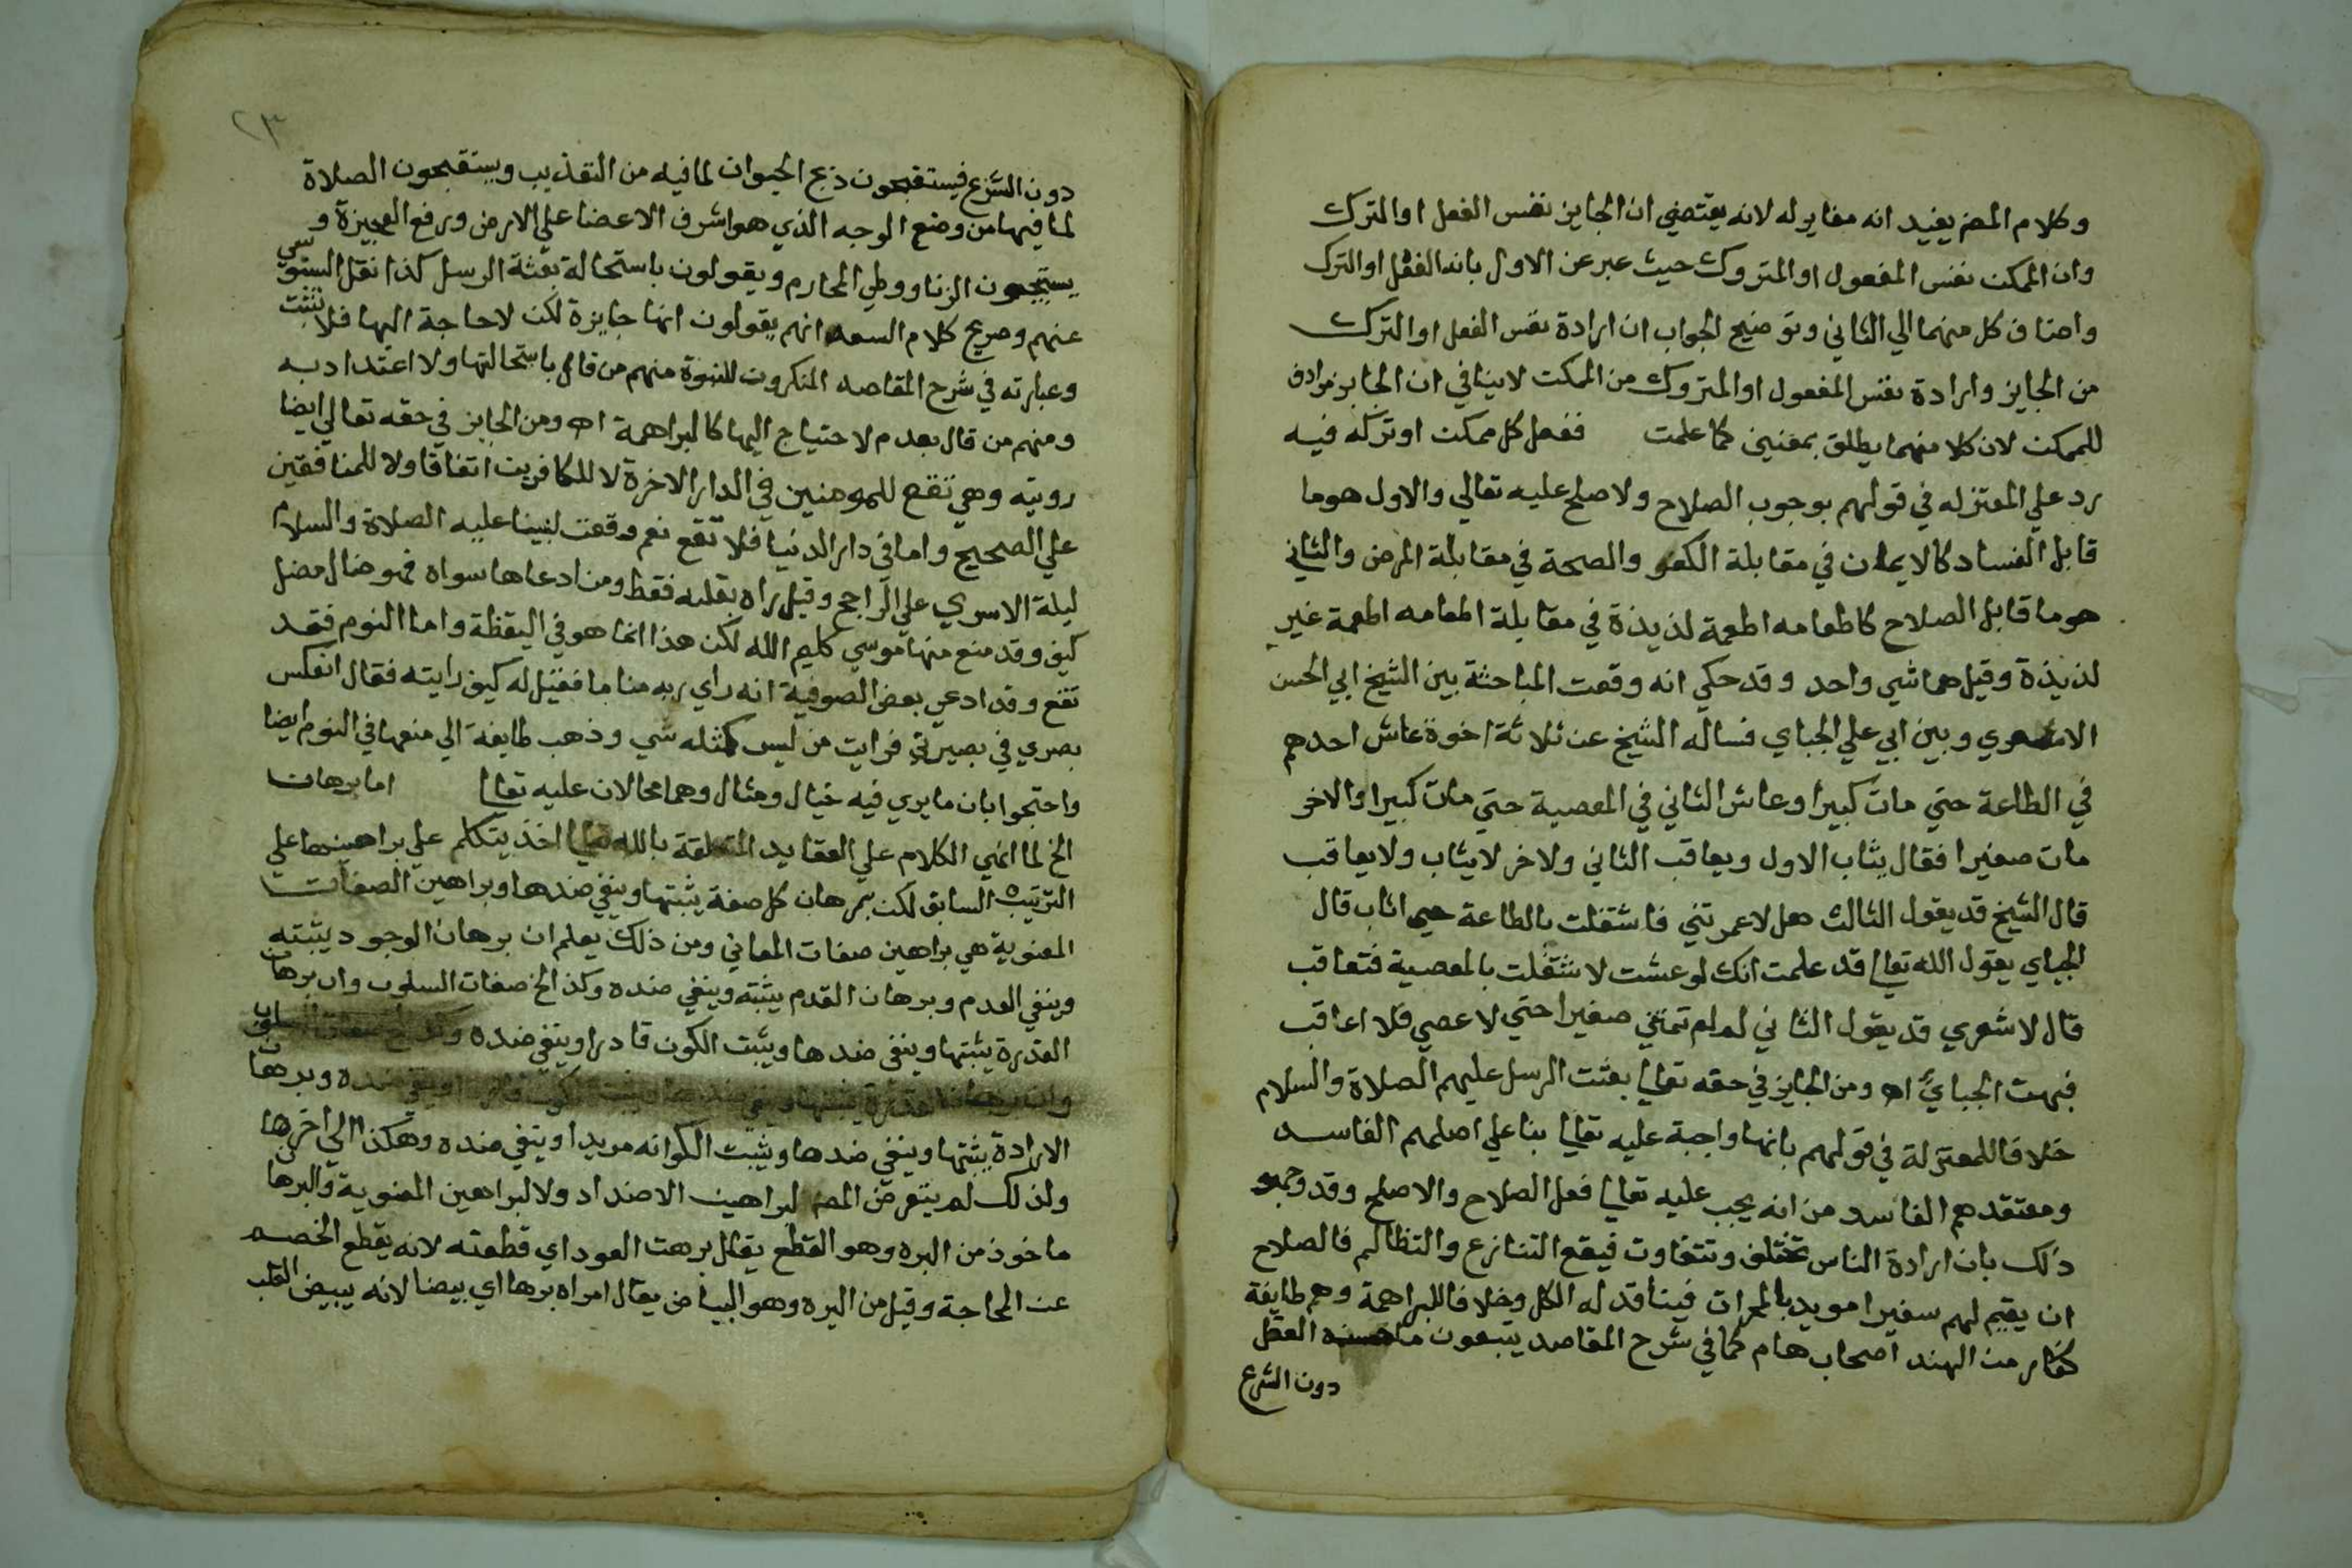 وكلام المص يفيد انه مغاير له لانه يقتضي ان الجايز نفس الفعل او الترك
وان الممكن نفس المفعول او المتروك حيث عبر عن الاول بانه الفعل او الترك
واضاف كل منهما الي الثاني وتوضيح الجواب ان ارادة نفس الفعل او الترك
من الجايز وارادة نفس المفعول او المتروك من الممكن لا ينافي ان الجايز مرادف
للممكن لان كلا منهما يطلق بمعنيين كما علمت ففعل كل ممكن او تركه فيه
رد علي المعتزله في قولهم بوجوب الصلاح ولاصلح عليه تعالي والاول هو ما
قابل الفساد كالايمان في مقابلة الكفر والصحة في مقابلة المرض والثاني
هو ما قابل الصلاح كاطعامه اطعمة لذيذة في مقابلة اطعامه اطعمة غير
لذيذة وقيل هما شي واحد وقد حكي انه وقعت المباحثة بين الشيخ ابي الحسن
الاشعري وبين ابي علي الجباي فساله الشيخ عن ثلاثة اخوة عاش احدهم
في الطاعة حتي مات كبيرا وعاش الثاني في المعصية حتي مات كبيرا والاخر
مات صغيرا فقال يثاب الاول ويعاقب الثاني ولاخر لا يثاب ولا يعاقب
قال الشيخ قد يقول الثالث هل لا عمرتني فاشتغلت بالطاعة حتي اثاب قال
الجباي يقول الله تعالي قد علمت انك لو عشت لاشتغلت بالمعصية فتعاقب
قال لاشعري قد يقول الثاني لم لم تمتني صغيرا حتي لا عصي فلا اعاقب
فبهت الجباي اه ومن الجايز في حقه تعالي بعثت الرسل عليهم الصلاة والسلام
خلافا للمعتزلة في قولهم بانها واجبة عليه تعالي بنا علي اصلهم الفاسد
ومعتقدهم الفاسد من انه يجب عليه تعالي فعل الصلاح والاصلح وقد وجهو
ذلك بان ارادة الناس تختلف وتتفاوت فيقع التنازع والتظالم فالصلاح
ان يقيم لهم سفيرا مويد بالمعجزات فينأقد له الكل وخلافا للبراهمة وهم طايفة
كفار من الهند اصحاب هام كما في شرح المقاصد يتبعون ما حسنه العقل
دون الشرع
٢٣
دون الشرع فيستقبحون ذبح الحيوان لما فيه من التعذيب ويستقبحون الصلاة
لما فيها من وضع الوجه الذي هو اشرف الاعضا علي الارض ورفع العجيزة و
يستبيحون الزنا ووطي المحارم ويقولون باستحالة بعثة الرسل كذا نقل السنوسي
عنهم وصريح كلام السعد انهم يقولون انها جايزة لكن لا حاجة اليها فلا تثبت
وعبارته في شرح المقاصد المنكرون للنبوة منهم من قال باستحالتها ولا اعتداد به
ومنهم من قال بعدم لاحتياج اليها كالبراهمة اه ومن الجايز في حقه تعالي ايضا
رويته وهي تقع للمومنين في الدار الاخرة لا للكافرين اتفاقا ولا للمنافقين
علي الصحيح واما في دار الدنيا فلا تقع نعم وقعت لنبينا عليه الصلاة والسلام
ليلة الاسري علي الراجح وقيل راه بقلبه فقط ومن ادعاها سواه فهو ضال مضل
كيف وقد منع منها موسي كليم الله لكن هذا انما هو في اليقظة واما النوم فقد
تقع وقد ادعي بعض الصوفية انه راي ربه مناما فقيل له كيف رايته فقال انعكس
بصري في بصيرتي فرايت من ليس كمثله شي وذهب طايفة الي منعها في النوم ايضا
واحتجوا بان ما يري فيه خيال ومثال وهما محالان عليه تعالي اما برهان
الخ لما انهي الكلام علي العقايد المتعلقة بالله تعالي اخذ يتكلم علي براهينها علي
الترتيب السابق لكن برهان كل صفة يثبتها وينفي ضدها وبراهين الصفات
المعنوية هي براهين صفات المعاني ومن ذلك يعلم ان برهان الوجود يثبته
وينفي العدم وبرهان القدم يثبته وينفي ضده وكذ الخ صفات السلوب وان برهان
القدرة يثبتها وينفي ضدها ويثبت الكون قادرا وينفي ضده وكذ الخ صفات السلوب
وان برهان القدرة يثبتها وينفي ضدها ويثبت الكون قادرا وينفي ضده وبرهان
الارادة يثبتها وينفي ضدها ويثبت الكوانه مريدا وينفي ضده وهكذا الي اخرها
ولذلك لم يتعرض المص لبراهين الاضداد ولا لبراهين المعنوية والبرهان
ماخوذ من البره وهو القطع يقال برهت العود اي قطعته لانه يقطع الخصم
عن المحاجة وقيل من البره وهو البياض يقال امراه برها اي بيضا لانه يبيض القلب